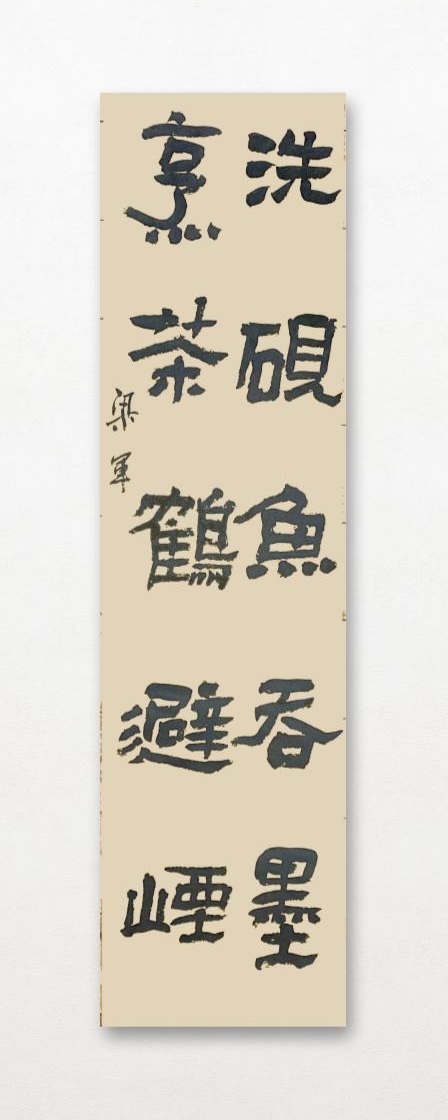 洗硯魚吞墨
烹茶鶴避煙
梁軍